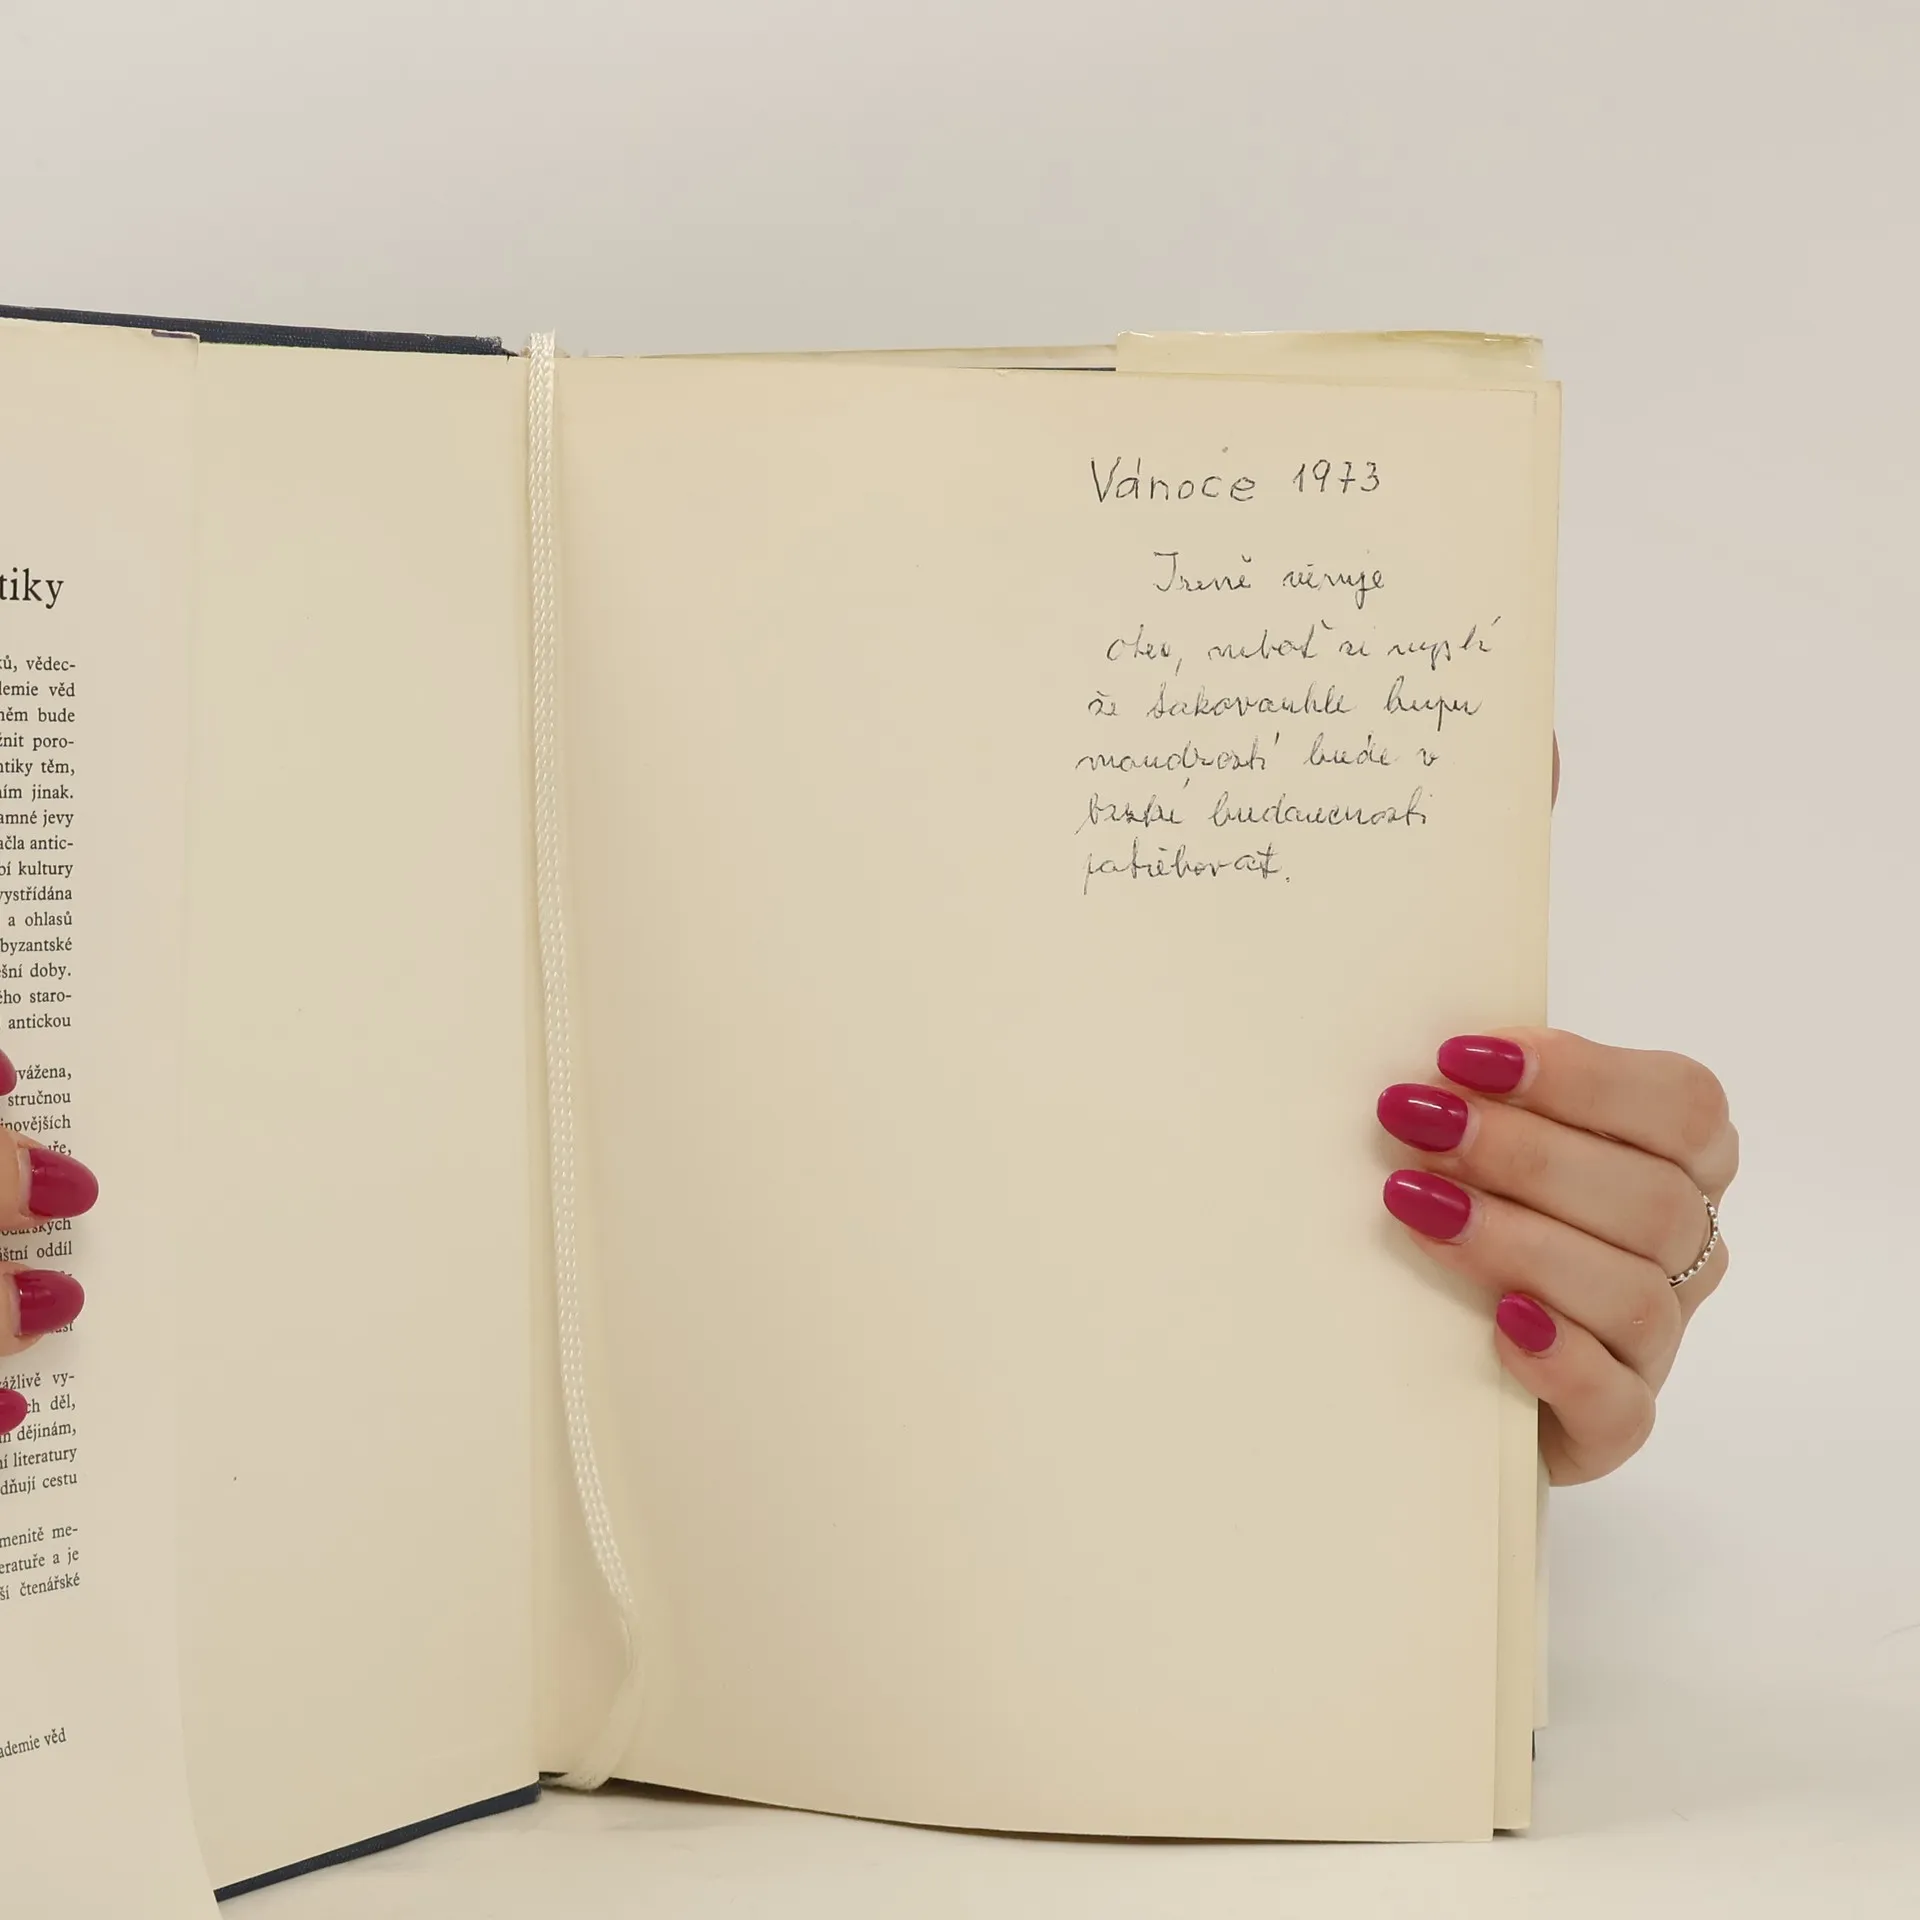 tiky
ků, vědec-
demie věd
něm bude
žnit poro-
ntiky těm,
ním jinak.
amné jevy
ačla antic-
bí kultury
vystřídána
a ohlasů
byzantské
ešní doby.
ého staro-
antickou
vážena,
stručnou
jnovějších
uře,
odářských
áštní oddíl
ážlivě vy-
ch děl,
m dějinám,
ní literatury
dňují cestu
menitě me-
eratuře a je
ší čtenářské
ademie věd
Vánoce 1973
Ireně věnuje
otec, neboť si myslí
že takovouhle kupu
moudrosti bude v
brzké budoucnosti
potřebovat.